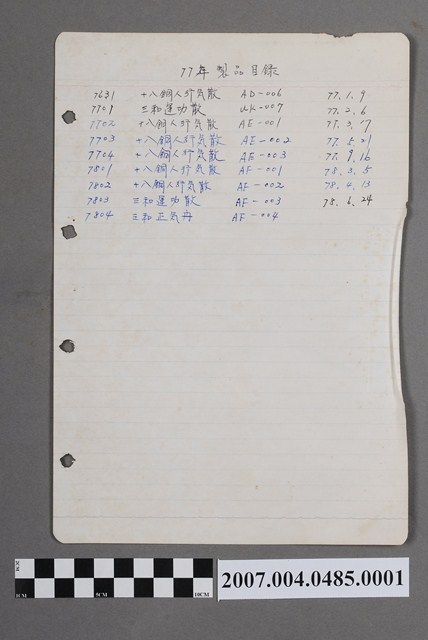 77年 製品目錄
7631 十八銅人行気散 AD-006 77.1.9
7701 三和運功散 UK-007 77.2.6
7702 十八銅人行気散 AE-001 77.3.17
7703 十八銅人行気散 AE-002 77.5.21
7704 十八銅人行気散 AE-003 77.9.16
7801 十八銅人行気散 AF-001 78.3.5
7802 十八銅人行気散 AF-002 78.4.15
7803 三和運功散 AF-003 78.6.24
7804 三和正気丹 AF-004
1CM 5CM 10CM
2007.004.0485.0001